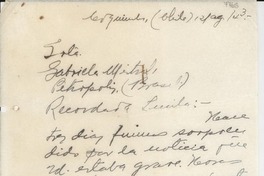 Coquimbo, (Chile) 12/ag./43.-
Srta.
Gabriela Mistral
Petrópolis, (Brasil)
Recordada Lucila:-
Hace
tres días fuimos sorpren
dido por la noticia que
Ud. estaba grave. Horas